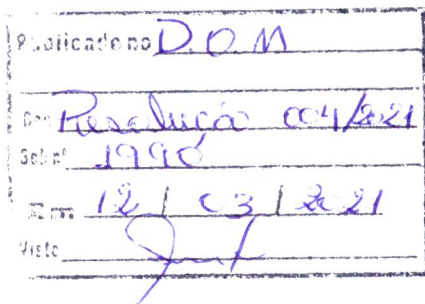 Publicado no D.O.M
Resolução 004/2021
Sob nº 1990
12 / 03 / 2021
Visto